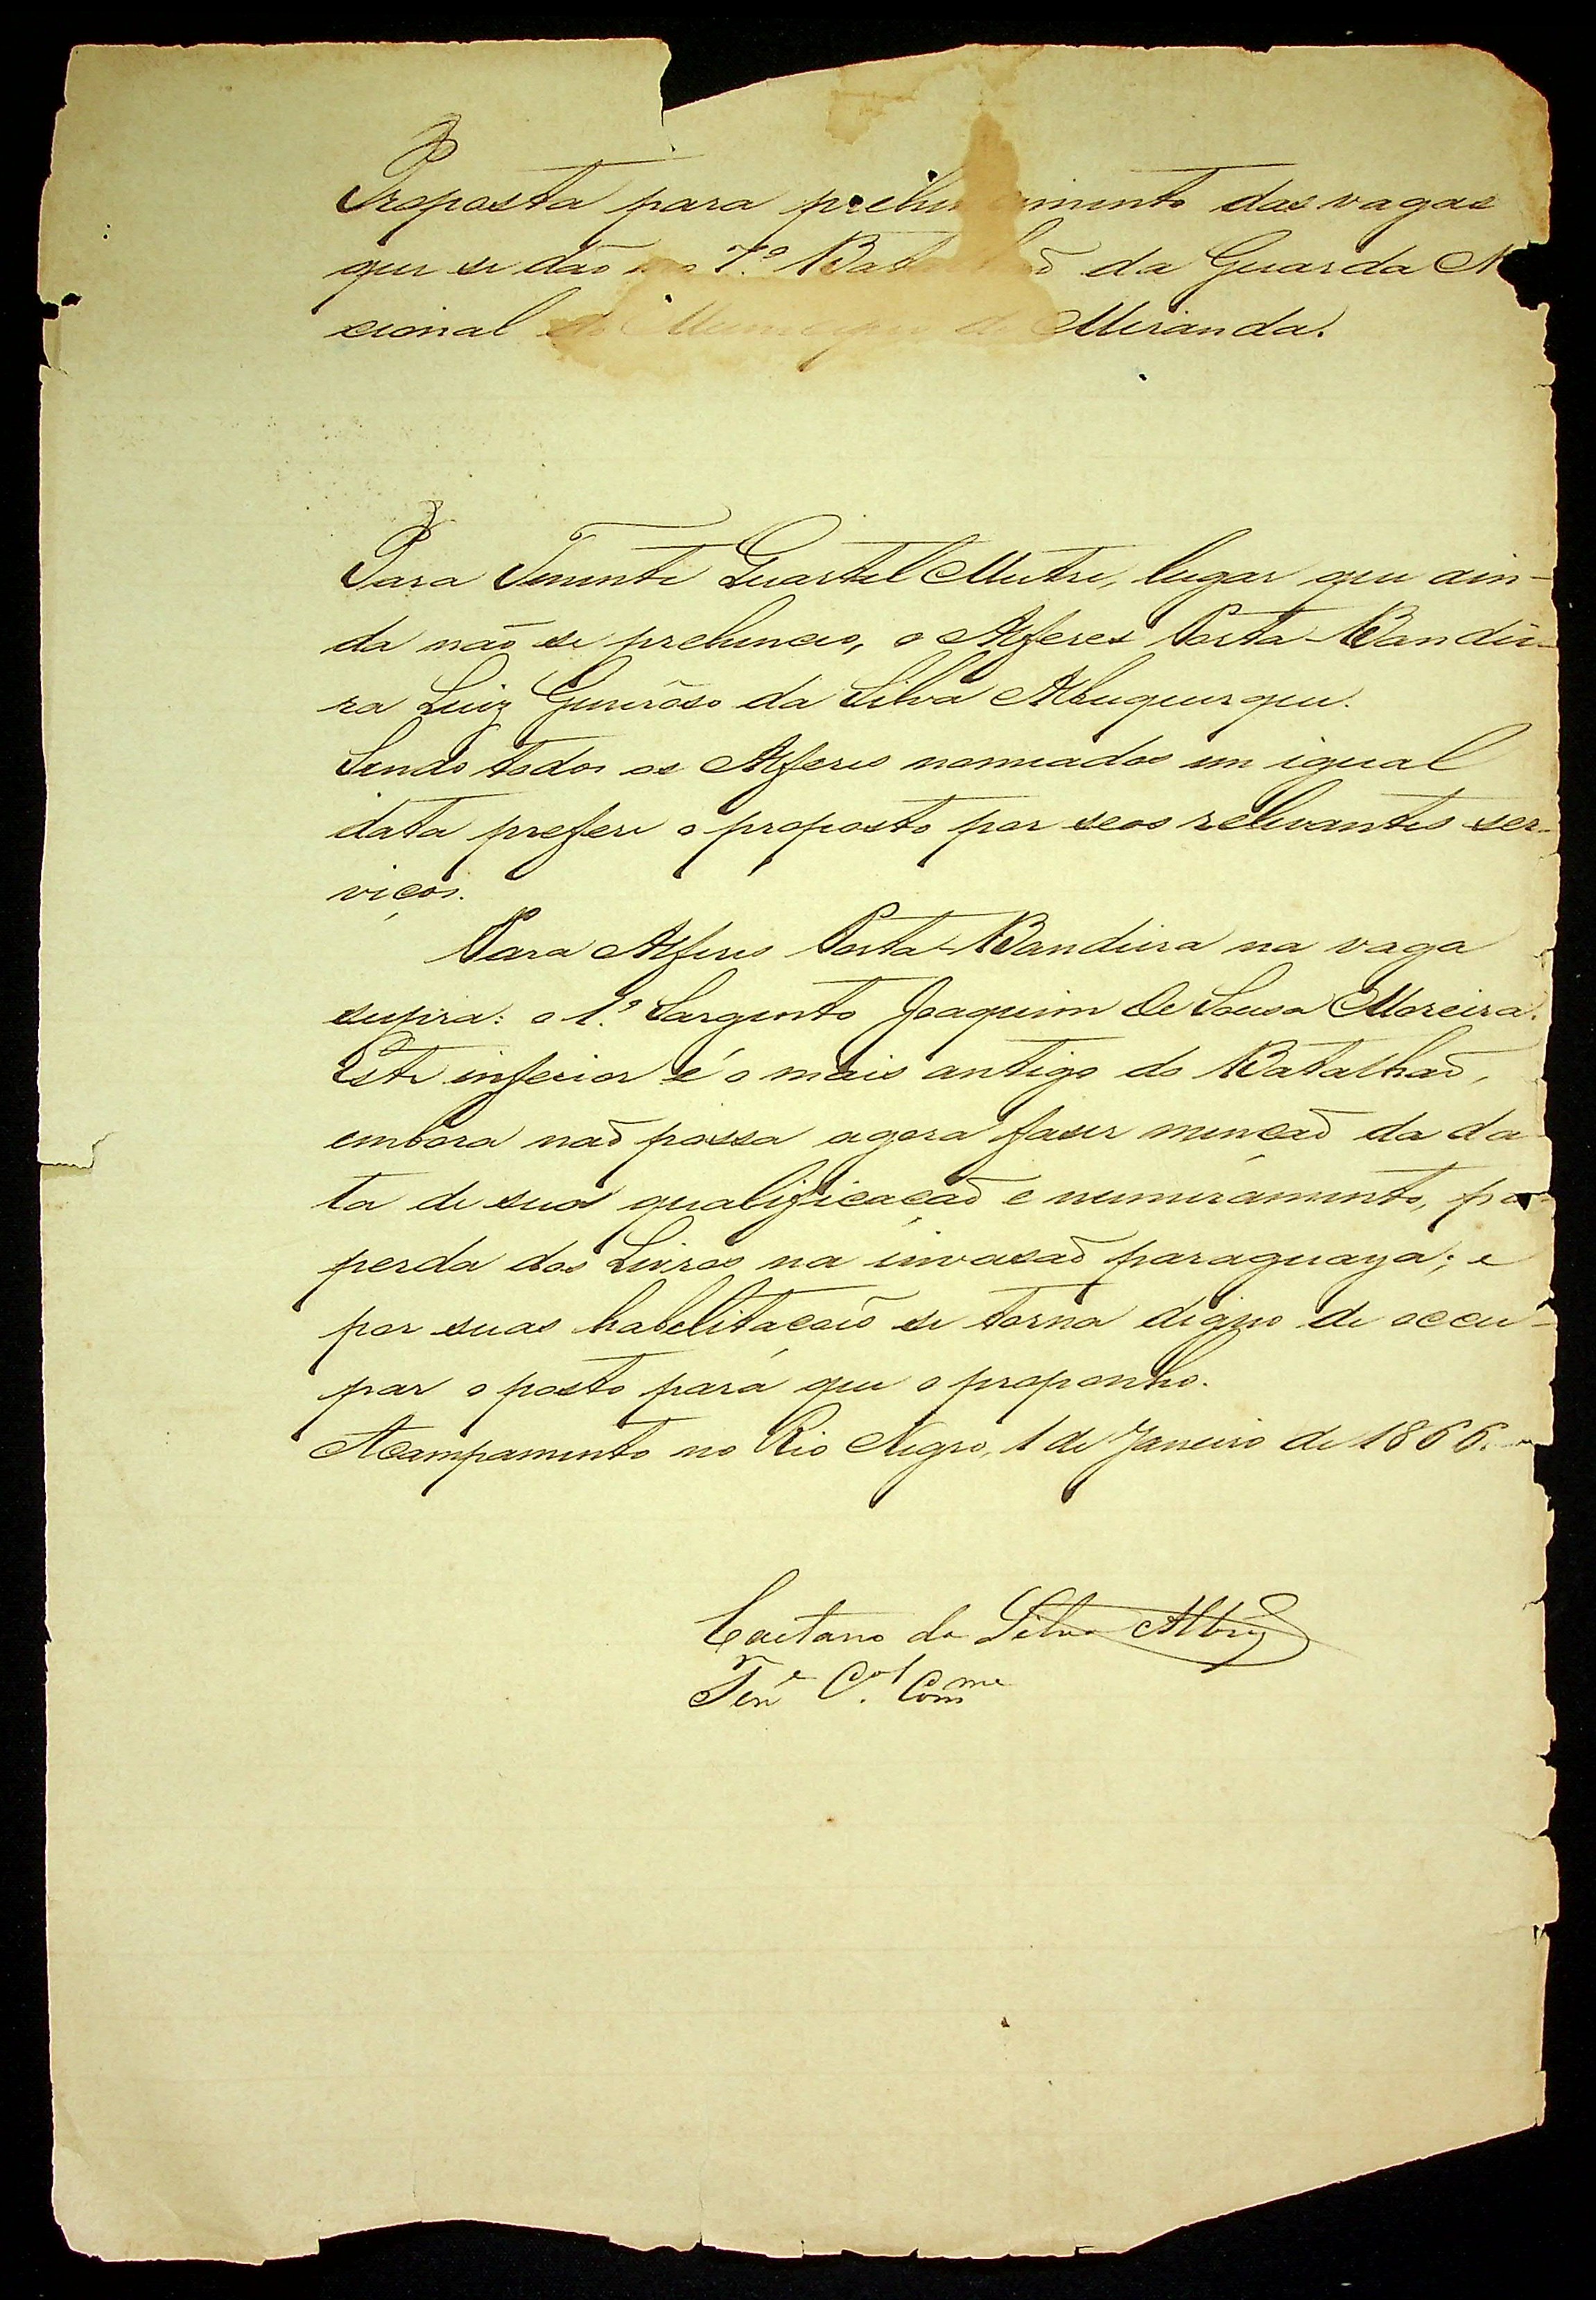 Proposta para prehen imento das vagas
que se dão no 7.º Bat haõ da Guarda N
cional do Municipio de Miranda.
Para Tenente Quartel Mestre, lugar que ain-
da não se prehenceo, o Alferes Porta-Bandei-
ra Luiz Generoso da Silva Albuquerque.
Sendo todos os Alferes nomeados em igual
data prefere o proposto por seos relevantes ser-
viços.
Para Alferes Porta-Bandeira na vaga
supra: o 1.º Sargento Joaquim de Sousa Moreira.
Este inferior é o mais antigo do Batalhaõ,
embora naõ possa agora faser mençaõ da da-
ta de sua qualificaçaõ e numeramento, por
perda dos Livros na invasaõ paraguaya; e
por suas habelitaçoẽs se torna digno de occu-
par o posto para que o proponho.
Acampamento no Rio Negro, 1 de Janeiro de 1866.
Caetano da Silva Albuq
Ten.e C.ol Com.me